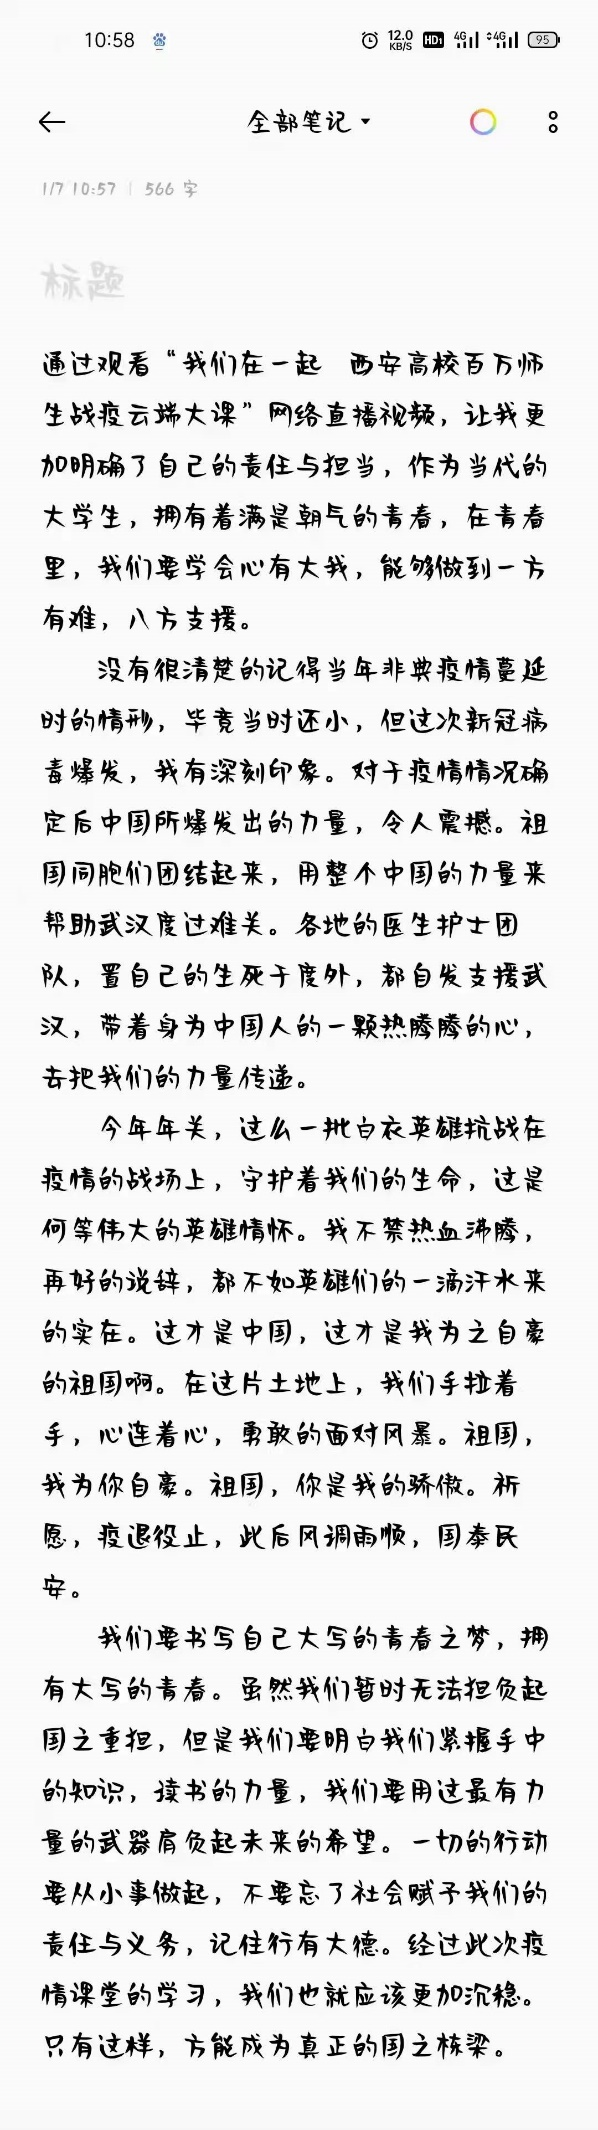 10:58 12.0 KB/S HD1 4G 4G 95
全部笔记
1/7 10:57 | 566 字
标题
通过观看“我们在一起　西安高校百万师
生战疫云端大课”网络直播视频，让我更
加明确了自己的责任与担当，作为当代的
大学生，拥有着满是朝气的青春，在青春
里，我们要学会心有大我，能够做到一方
有难，八方支援。
没有很清楚的记得当年非典疫情蔓延
时的情形，毕竟当时还小，但这次新冠病
毒爆发，我有深刻印象。对于疫情情况确
定后中国所爆发出的力量，令人震撼。祖
国同胞们团结起来，用整个中国的力量来
帮助武汉度过难关。各地的医生护士团
队，置自己的生死于度外，都自发支援武
汉，带着身为中国人的一颗热腾腾的心，
去把我们的力量传递。
今年年关，这么一批白衣英雄抗战在
疫情的战场上，守护着我们的生命，这是
何等伟大的英雄情怀。我不禁热血沸腾，
再好的说辞，都不如英雄们的一滴汗水来
的实在。这才是中国，这才是我为之自豪
的祖国啊。在这片土地上，我们手拉着
手，心连着心，勇敢的面对风暴。祖国，
我为你自豪。祖国，你是我的骄傲。祈
愿，疫退役止，此后风调雨顺，国泰民
安。
我们要书写自己大写的青春之梦，拥
有大写的青春。虽然我们暂时无法担负起
国之重担，但是我们要明白我们紧握手中
的知识，读书的力量，我们要用这最有力
量的武器肩负起未来的希望。一切的行动
要从小事做起，不要忘了社会赋予我们的
责任与义务，记住行有大德。经过此次疫
情课堂的学习，我们也就应该更加沉稳。
只有这样，方能成为真正的国之栋梁。